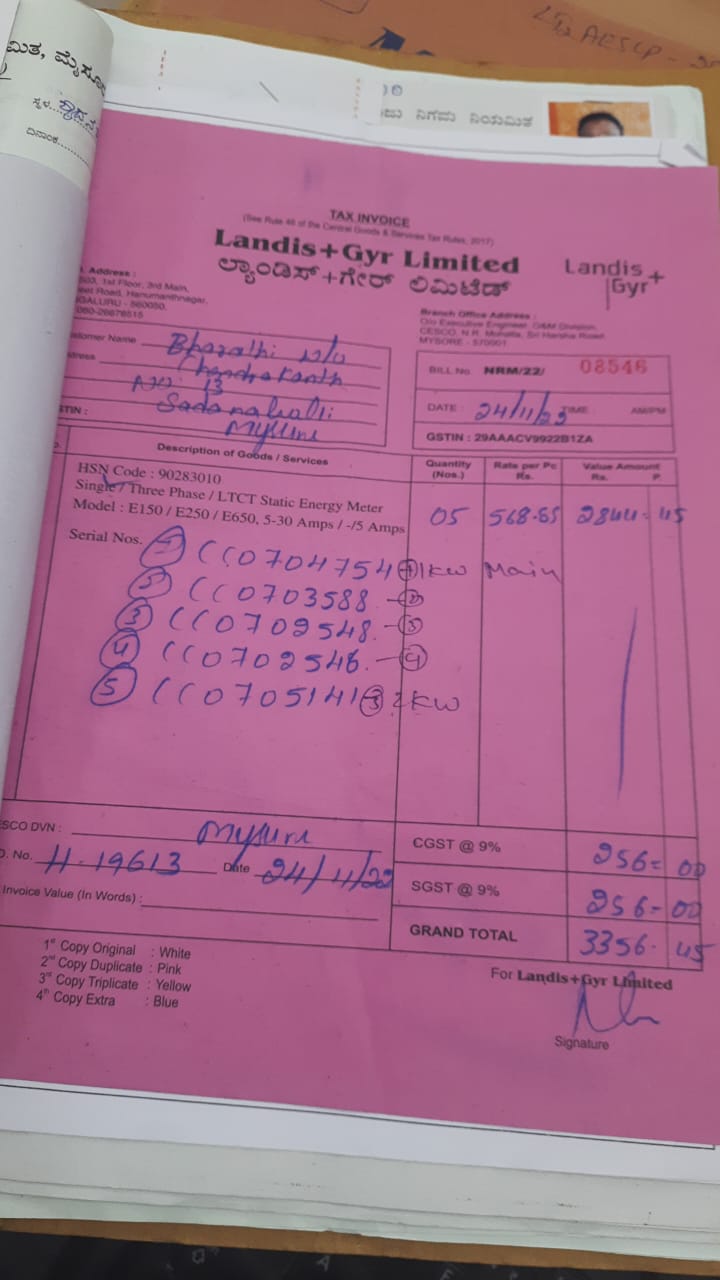 ಮಿತ, ಮೈಸೂ
ಸ್ಥಳ
ದಿನಾಂಕ
ನಿಗಮ ನಿಯಮಿತ
TAX INVOICE
(See Rule 46 of the Central Goods & Services Tax Rules, 2017)
Landis+Gyr Limited
ಲ್ಯಾಂಡಿಸ್+ಗೇರ್ ಲಿಮಿಟೆಡ್
Landis+Gyr
Address :
1st Floor, 3rd Main,
eet Road, Hanumanthnagar,
GALURU - 560050.
080-26678515
Branch Office Address :
O/o Executive Engineer, O&M Division,
CESCO, N.R. Mohalla, Sri Harsha Road,
MYSORE - 570001
stomer Name Bharathi w/o
dress Chandrakanth
No: 13
Sadanahalli
STIN : Mysuru
BILL No. NRM/22/ 08546
DATE : 24/11/22 TIME : AM/PM
GSTIN : 29AAACV9922B1ZA
Description of Goods / Services Quantity (Nos.) Rate per Pc Rs. Value Amount Rs. P.
HSN Code : 90283010
Single / Three Phase / LTCT Static Energy Meter
Model : E150 / E250 / E650, 5-30 Amps / -/5 Amps 05 568.85 2844-45
Serial Nos.
① CC0704754 ① 1KW Main
② CC0703588 - ②
③ CC0702548. - ③
④ CC0702546. - ④
⑤ CC0705141 2KW
SCO DVN : Mysuru
D. No. H-19613 Date 24/11/22
Invoice Value (In Words) :
CGST @ 9% 256=00
SGST @ 9% 256-00
GRAND TOTAL 3356.45
1st Copy Original : White
2nd Copy Duplicate : Pink
3rd Copy Triplicate : Yellow
4th Copy Extra : Blue
For Landis+Gyr Limited
Signature